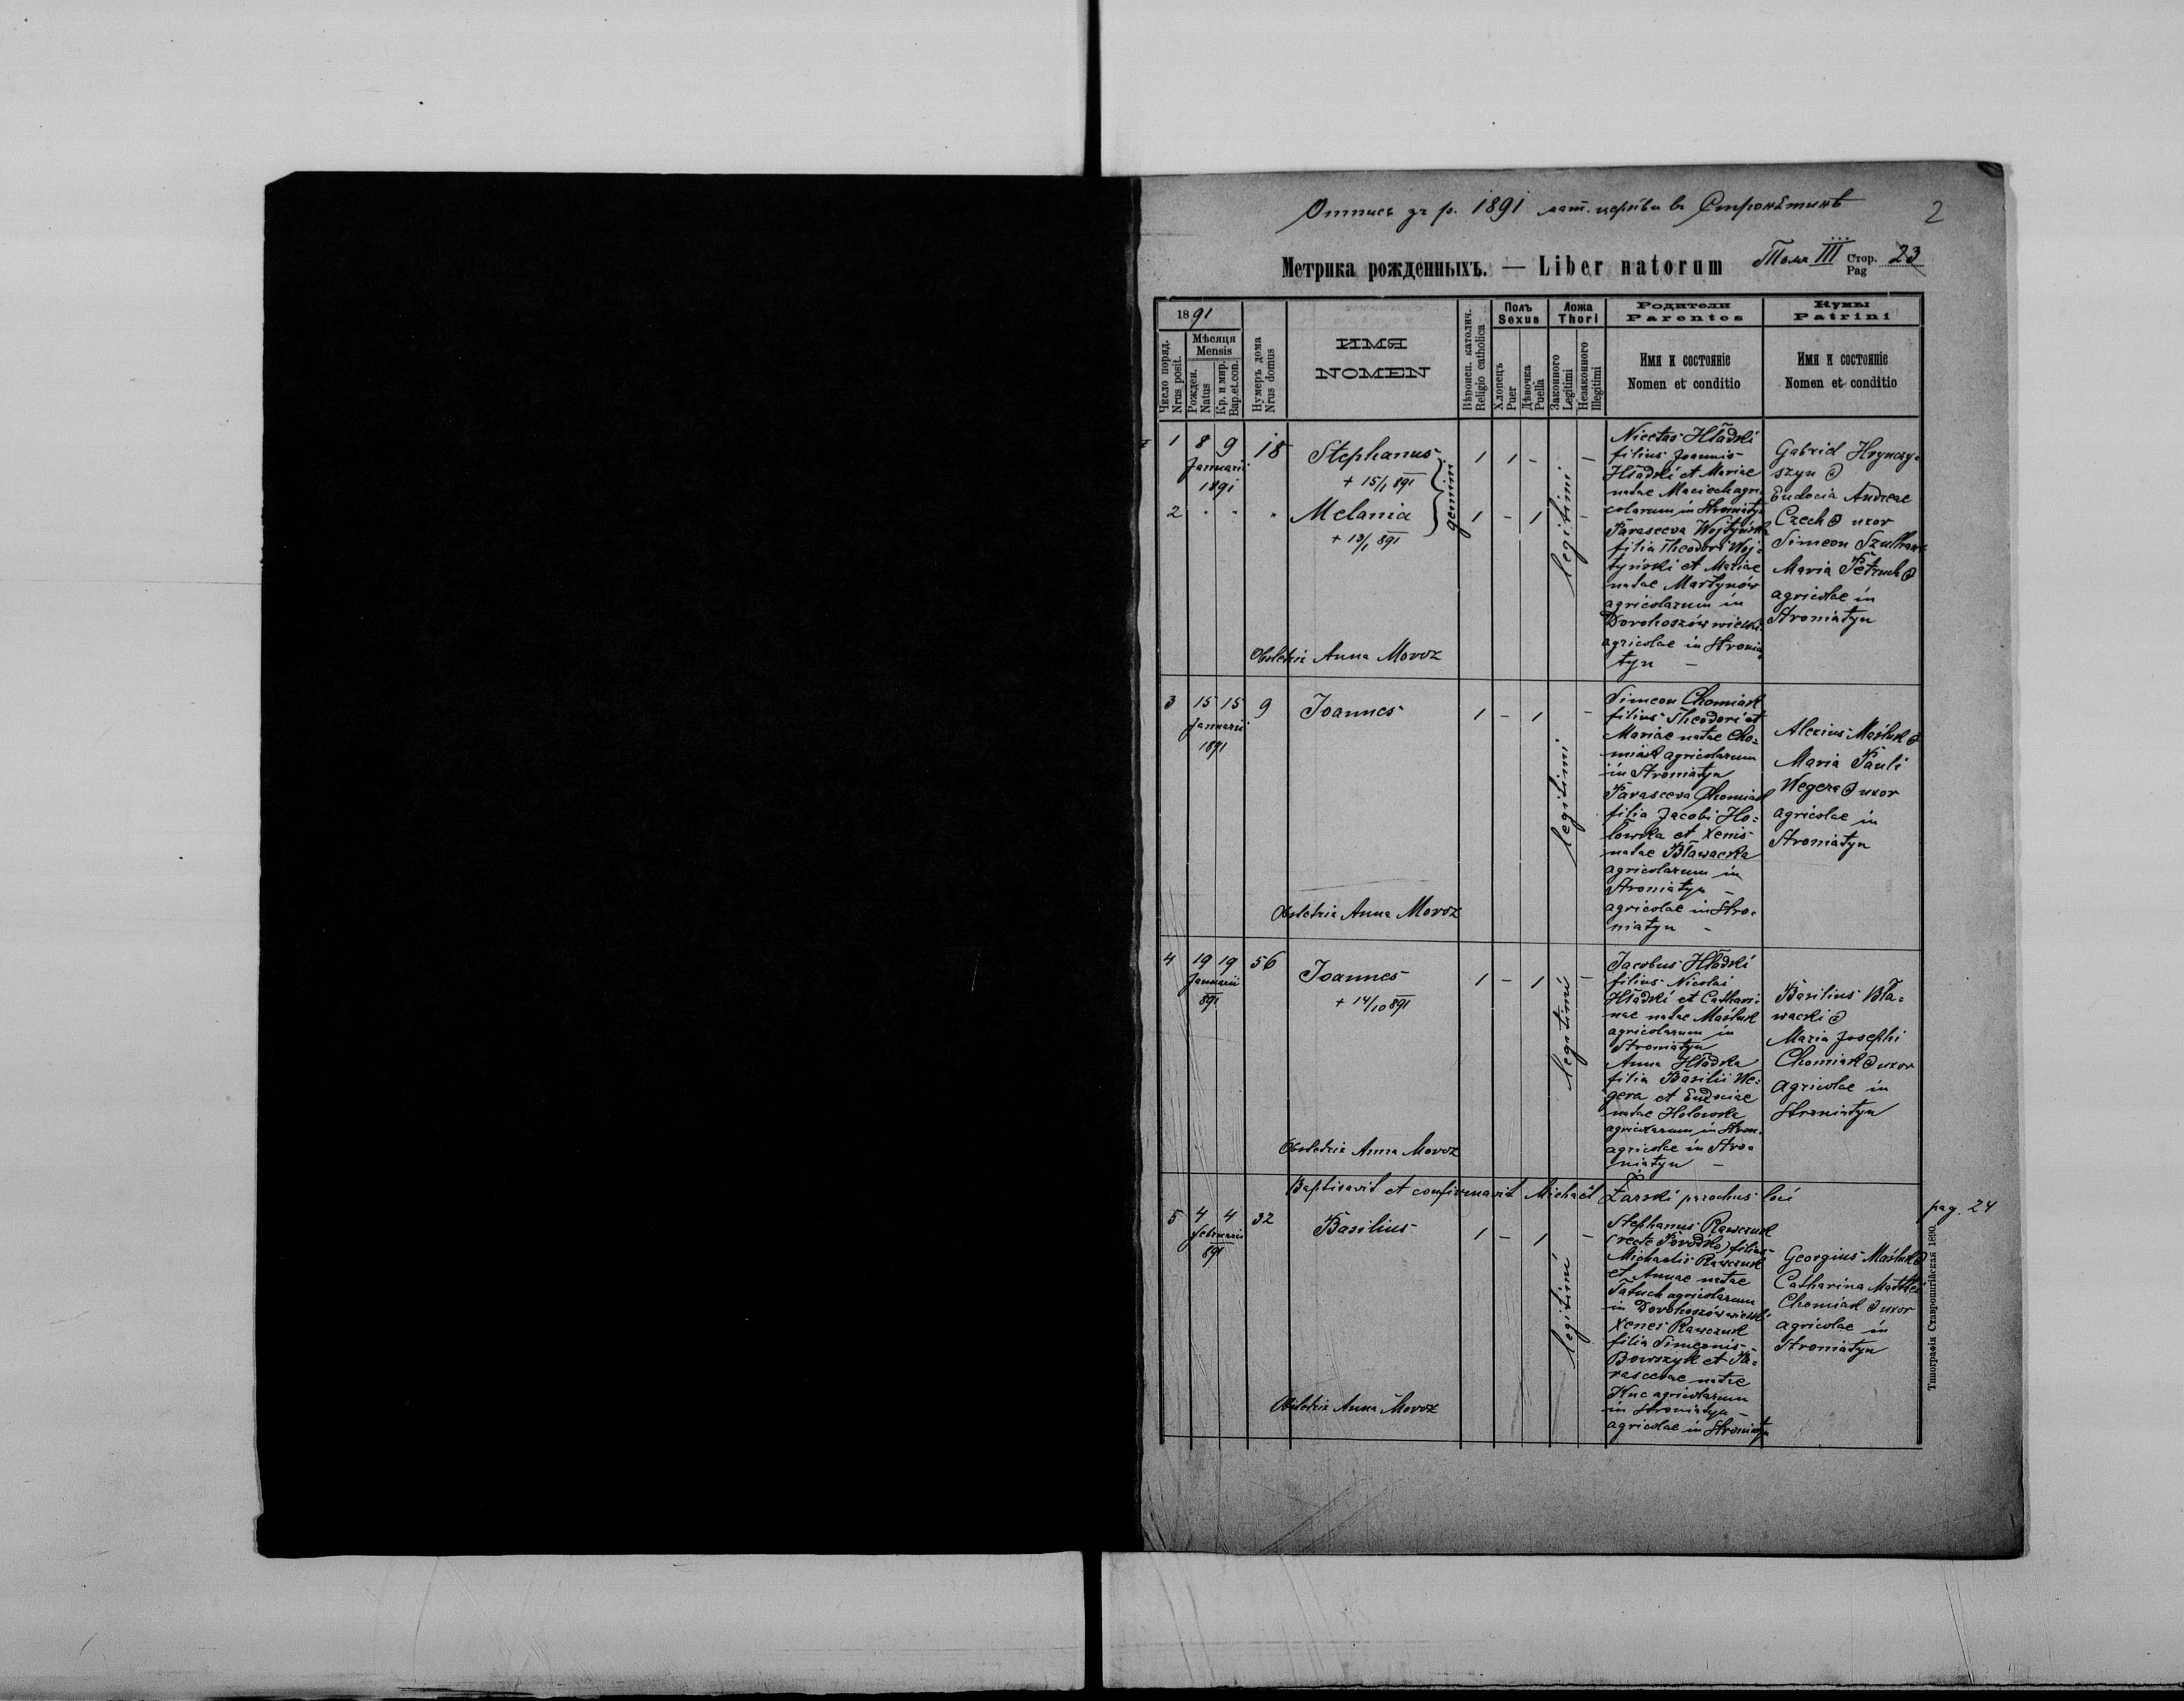 Отпис зг р. 1891 мат. церкви в Стронѣтинѣ
2
Метрика рожденныхъ. — Liber natorum Том III Стор. Pag 23
1891
Число поряд. Nrus posit.
Мѣсяця Mensis
Рожден. Natus
Кр. и мир. Bap.et.con.
Нумеръ дома Nrus domus
ИМЯ
NOMEN
Вѣроисп. католич. Religio catholica
Полъ Sexus
Хлопецъ Puer
Дѣвочка Puella
Ложа Thori
Законного Legitimi
Незаконного Illegitimi
Родители
Parentes
Имя и состояніе
Nomen et conditio
Кумы
Patrini
Имя и состояніе
Nomen et conditio
1 8 9 Januarii 1891 18
Stephanus
+ 15/1 891
1 1 - -
2 " " "
Melania
+ 13/1 891
gemini
1 - 1 -
legitimi
Nicetas Hładki
filius Joannis
Hładki et Mariae
natae Maciech agri-
colarum in Stroniatyn
Parasceva Wojtyńska
filia Theodori Woj-
tyński et Mariae
natae Martynów
agricolarum in
Dorohoszów wielki
agricolae in Stronia
tyn -
Gabriel Hrynczy-
szyn &
Eudocia Andreae
Czech & uxor
Simeon
Maria Petruch &
agricolae in
Stroniatyn
Obstetrix Anna Moroz
3 15 15 Januarii 1891 9
Joannes
1 - 1 -
legitimi
Simeon Chomiak
filius Theodori et
Mariae natae Cho-
miak agricolarum
in Stroniatyn
Parasceva Chomiak
filia Jacobi Ho-
łowka et Xenis
natae Bławacka
agricolarum in
Stroniatyn -
agricolae in Stro-
niatyn -
Alexius Maśluk &
Maria Pauli
Wegera & uxor
agricolae in
Stroniatyn
Obstetrix Anna Moroz
4 19 19 Januarii 891 56
Joannes
+ 14/10 891
1 - 1 -
legitimi
Jacobus Hładki
filius Nicolai
Hładki et Cathari-
nae natae Maśluk
agricolarum in
Stroniatyn
Anna Hładka
filia Basilii We-
gera et
natae Hołowka
agricolarum in Stron.
agricolae in Stro-
niatyn -
Basilius Bła-
wacki &
Maria Josephi
Chomiak & uxor
agricolae in
Stroniatyn
Obstetrix Anna Moroz
Baptisavit et confirmavit Michaël Żarski parochus loci
pag. 24
5 4 4 Februarii 891 32
Basilius
1 - 1 -
legitimi
Stephanus Rawczuk
(recte Porodko) filius
Michaelis Rawczuk
et Annae natae
Tatuch agricolarum
in Dorohoszów wielki
Xenes Rawczuk
filia Simeonis
Bowszyk et Pa-
rascevae natae
Kuc agricolarum
in Stroniatyn -
agricolae in Stroniatyn
Georgius Maśluk &
Catharina Matthei
Chomiak & uxor
agricolae in
Stroniatyn
Obstetrix Anna Moroz
Типографія Ставропигійская 1890.